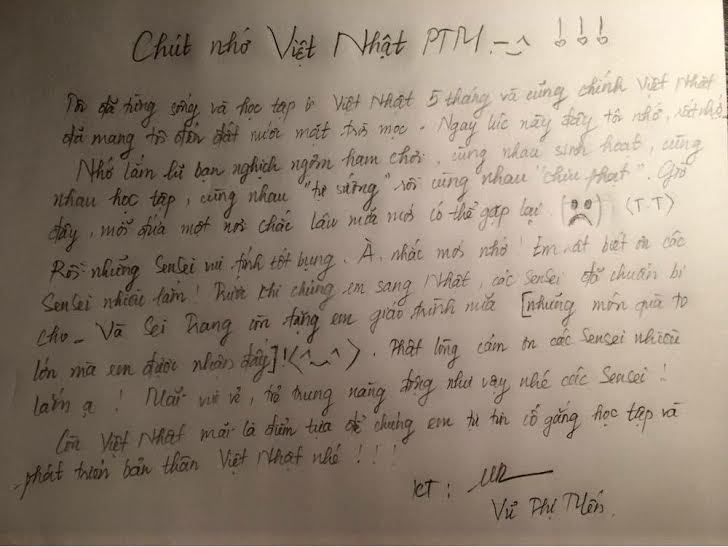 Chút nhớ Việt Nhật PTM. -‿^ !!!
Tôi đã từng sống và học tập ở Việt Nhật 5 tháng và cũng chính Việt Nhật
đã mang tôi đến đất nước mặt trời mọc. Ngay lúc này đây tôi nhớ, rất nhớ
Nhớ lắm lũ bạn nghịch ngợm ham chơi, cùng nhau sinh hoạt, cùng
nhau học tập, cùng nhau "tự sướng" rồi cùng nhau "chịu phạt". Giờ
đây, mỗi đứa một nơi chắc lâu mới có thể gặp lại (T.T)
Rồi những Sensei vui tính tốt bụng. À, nhắc mới nhớ! Em rất biết ơn các
Sensei nhiều lắm! Trước khi chúng em sang Nhật, các Sensei đã chuẩn bị
cho_ Và Sei Trang còn tặng em giáo trình nữa [những món quà to
lớn mà em được nhận đấy]!(^‿^). Thật lòng cảm ơn các Sensei nhiều
lắm ạ! Mãi vui vẻ, trẻ trung năng động như vậy nhé các Sensei!
Còn Việt Nhật mãi là điểm tựa để chúng em tự tin cố gắng học tập và
phát triển bản thân Việt Nhật nhé!!!
KT:
Vũ Thị Yến.